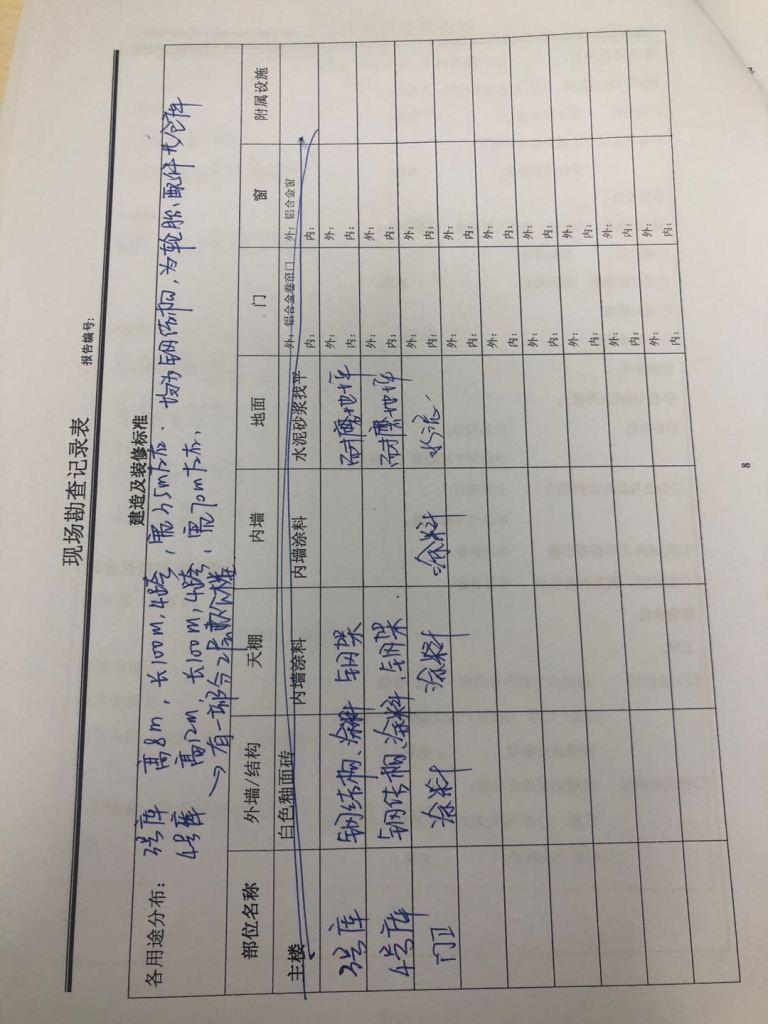 现场勘查记录表
报告编号:
建造及装修标准
各用途分布: 3号库 高8m,长100m,4跨,宽75m左右. 均为钢结构,为轮胎、配件大仓库
4号库 高12m,长100m,4跨,宽70m左右,
→有一部分2层办公楼
部位名称 外墙/结构 天棚 内墙 地面 门 窗 附属设施
主楼 白色釉面砖 内墙涂料 内墙涂料 水泥砂浆找平 外:铝合金卷帘门 外:铝合金窗
内: 内:
3号库 钢结构、涂料 钢架 耐磨地坪 外: 外:
内: 内:
4号库 钢结构、涂料 钢架 耐磨地坪 外: 外:
内: 内:
门卫 涂料 涂料 涂料 水泥 外: 外:
内: 内:
外: 外:
内: 内:
外: 外:
内: 内:
外: 外:
内: 内:
外: 外:
内: 内:
外: 外:
内: 内:
外: 外:
内: 内:
8